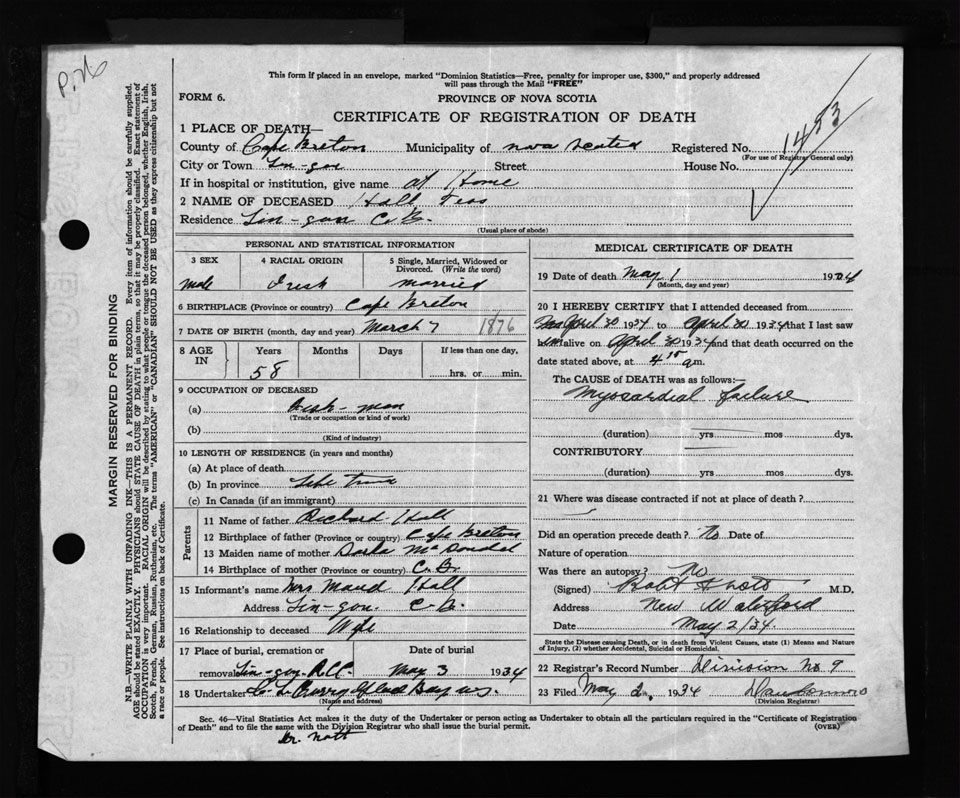 P. 76
This form if placed in an envelope, marked "Dominion Statistics—Free, penalty for improper use, $300," and properly addressed
will pass through the Mail "FREE"
FORM 6.
PROVINCE OF NOVA SCOTIA
CERTIFICATE OF REGISTRATION OF DEATH
1453
1 PLACE OF DEATH—
County of Cape Breton Municipality of nova scotia Registered No.
(For use of Registrar General only)
City or Town Lin-gon Street House No.
If in hospital or institution, give name at Home
2 NAME OF DECEASED Hall
Residence Lin-gon C.B.
(Usual place of abode)
PERSONAL AND STATISTICAL INFORMATION
3 SEX male
4 RACIAL ORIGIN Irish
5 Single, Married, Widowed or Divorced. (Write the word) married
6 BIRTHPLACE (Province or country) Cape Breton
7 DATE OF BIRTH (month, day and year) March 7 1876
8 AGE IN Years Months Days If less than one day,
58 hrs. or min.
9 OCCUPATION OF DECEASED
(a) man
(Trade or occupation or kind of work)
(b)
(Kind of industry)
10 LENGTH OF RESIDENCE (in years and months)
(a) At place of death
(b) In province Life Time
(c) In Canada (if an immigrant)
Parents
11 Name of father Richard Hall
12 Birthplace of father (Province or country) Cape Breton
13 Maiden name of mother McDondal
14 Birthplace of mother (Province or country) C.B.
15 Informant's name Mrs Maud Hall
Address Lin-gon. C.B.
16 Relationship to deceased Wife
17 Place of burial, cremation or removal Date of burial
Lin-gon R.C.C. May 3 1934
18 Undertaker Curry Glace Bay N.S.
(Name and address)
MEDICAL CERTIFICATE OF DEATH
19 Date of death May 1 1934
(Month, day and year)
20 I HEREBY CERTIFY that I attended deceased from
April 30 1934 to April 30 1934 that I last saw
him alive on April 30 1934 and that death occurred on the
date stated above, at 4 15 a.m.
The CAUSE OF DEATH was as follows:—
Myocardial failure
(duration) yrs mos dys.
CONTRIBUTORY
(duration) yrs mos dys.
21 Where was disease contracted if not at place of death?
Did an operation precede death? No Date of
Nature of operation
Was there an autopsy? No
(Signed) M.D.
Address New Waterford
Date May 2/34
State the Disease causing Death, or in death from Violent Causes, state (1) Means and Nature
of Injury, (2) whether Accidental, Suicidal or Homicidal.
22 Registrar's Record Number Division No 9
23 Filed May 2, 1934
(Division Registrar)
Sec. 46—Vital Statistics Act makes it the duty of the Undertaker or person acting as Undertaker to obtain all the particulars required in the "Certificate of Registration
of Death" and to file the same with the Division Registrar who shall issue the burial permit. (OVER)
Dr. Nott
MARGIN RESERVED FOR BINDING
N.B.—WRITE PLAINLY WITH UNFADING INK—THIS IS A PERMANENT RECORD. Every item of information should be carefully supplied.
AGE should be stated EXACTLY. PHYSICIANS should STATE CAUSE OF DEATH in plain terms, so that it may be properly classified. Exact statement of
OCCUPATION is very important. RACIAL ORIGIN will be described by stating to what people or tongue the deceased person belonged, whether English, Irish,
Scotch, French, German, Russian, Ruthenian, etc. The terms "AMERICAN" or "CANADIAN" SHOULD NOT BE USED as they express citizenship but not
a race or people. See instructions on back of Certificate.